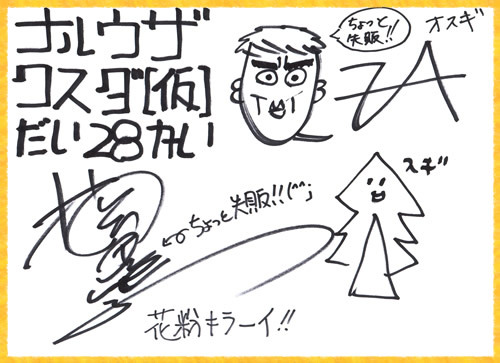 ナルウザ
ワスダ[仮]
だい28かい
ちょっと
失販!!
オスギ
スギ
ちょっと失販!!(^^;
花粉キラーイ!!